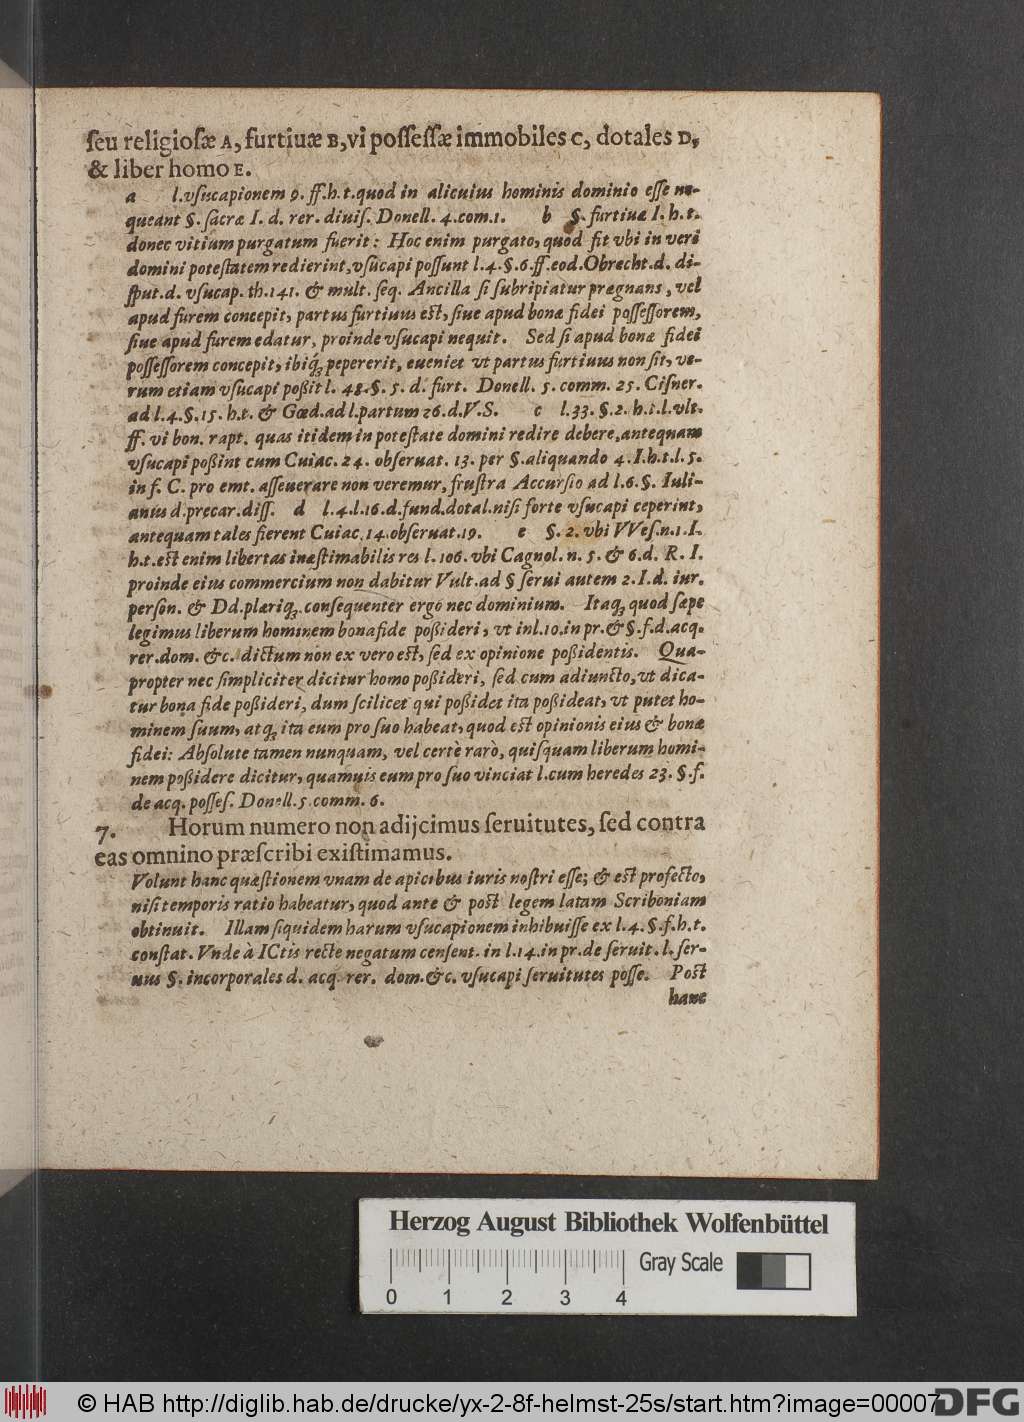 ſeu religioſæ A, furtiuæ B, vi poſſeſſæ immobiles C, dotales D,
& liber homo E.
a l. vſucapionem 9. ff. h. t. quod in alicuius hominis dominio eſſe ne-
queant §. ſacræ I. d. rer. diuiſ. Donell. 4. com. 1. b §. furtiuæ I. h. t.
donec vitium purgatum fuerit: Hoc enim purgato, quod fit vbi in veri
domini poteſtatem redierint, vſucapi poſſunt l. 4. §. 6. ff. eod. Obrecht. d. di-
ſput. d. vſucap. th. 141. & mult. ſeq. Ancilla ſi ſubripiatur prægnans, vel
apud furem concepit, partus furtiuus eſt, ſiue apud bonæ fidei poſſeſſorem,
ſiue apud furem edatur, proinde vſucapi nequit. Sed ſi apud bonæ fidei
poſſeſſorem concepit, ibiq́; pepererit, eueniet vt partus furtiuus non ſit, ve-
rum etiam vſucapi poßit l. 48. §. 5. d. furt. Donell. 5. comm. 25. Ciſner.
ad l. 4. §. 15. h. t. & Gœd. ad l. partum 26. d. V. S. c l. 33. §. 2. h. t. l. vlt.
ff. vi bon. rapt. quas itidem in poteſtate domini redire debere, antequam
vſucapi poßint cum Cuiac. 24. obſeruat. 13. per §. aliquando 4. I. h. t. l. 5.
in f. C. pro emt. aſſeuerare non veremur, fruſtra Accurſio ad l. 6. §. Iuli-
anus d. precar. diſſ. d l. 4. l. 16. d. fund. dotal. niſi forte vſucapi ceperint,
antequam tales fierent Cuiac. 14. obſeruat. 19. e §. 2. vbi VVeſ. n. 1. I.
h. t. eſt enim libertas inæſtimabilis res l. 106. vbi Cagnol. n. 5. & 6. d. R. I.
proinde eius commercium non dabitur Vult. ad § ſerui autem 2. I. d. iur.
perſon. & Dd. plæriq; conſequenter ergo nec dominium. Itaq; quod ſæpe
legimus liberum hominem bona fide poßideri, vt in l. 10. in pr. & §. f. d. acq.
rer. dom. &c. dictum non ex vero eſt, ſed ex opinione poßidentis. Qua-
propter nec ſimpliciter dicitur homo poßideri, ſed cum adiuncto, vt dica-
tur bona fide poßideri, dum ſcilicet qui poßidet ita poßideat, vt putet ho-
minem ſuum, atq; ita eum pro ſuo habeat, quod eſt opinionis eius & bonæ
fidei: Abſolute tamen nunquam, vel certè rarò, quiſquam liberum homi-
nem poßidere dicitur, quamuis eum pro ſuo vinciat l. cum heredes 23. §. f.
de acq. poſſeſ. Donell. 5 comm. 6.
7. Horum numero non adijcimus ſeruitutes, ſed contra
eas omnino præſcribi exiſtimamus.
Volunt hanc quæſtionem vnam de apicibus iuris noſtri eſſe; & eſt profecto,
niſi temporis ratio habeatur, quod ante & poſt legem latam Scriboniam
obtinuit. Illam ſiquidem harum vſucapionem inhibuiſſe ex l. 4. §. f. h. t.
conſtat. Vnde à ICtis recte negatum cenſent. in l. 14. in pr. de ſeruit. l. ſer-
uus §. incorporales d. acq. rer. dom. &c. vſucapi ſeruitutes poſſe. Poſt
hanc
Herzog August Bibliothek Wolfenbüttel
Gray Scale
0 1 2 3 4
© HAB http://diglib.hab.de/drucke/yx-2-8f-helmst-25s/start.htm?image=00007
DFG